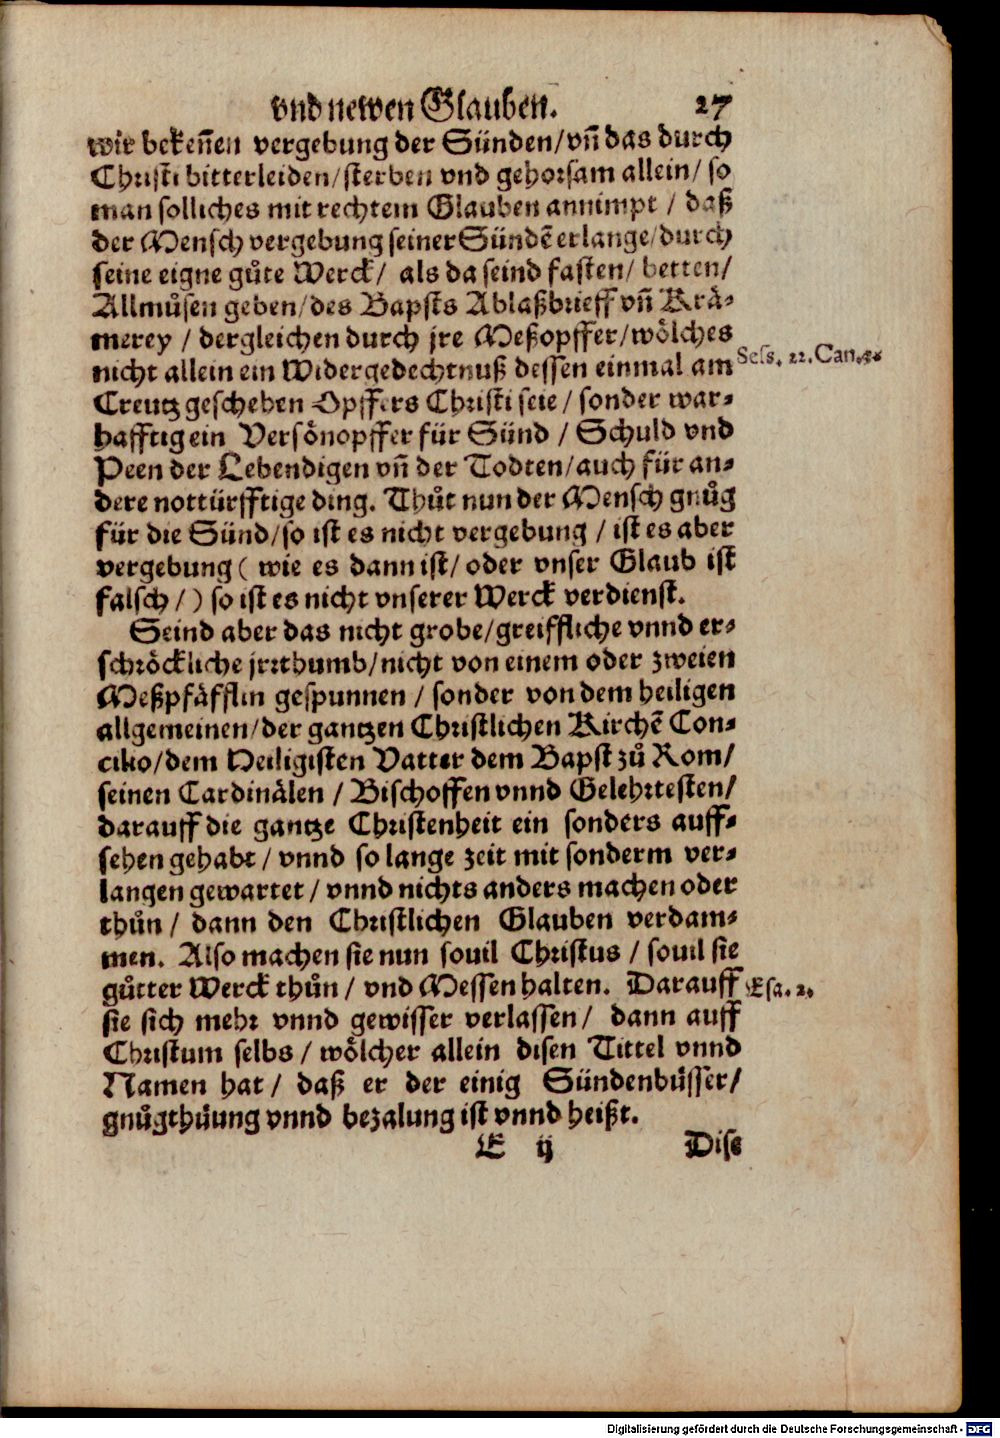 vnd newen Glauben. 27
wir bekeñen vergebung der Sünden/vñ das durch
Christi bitterleiden/sterben vnd gehorsam allein/ so
man solliches mit rechtem Glauben annimpt / daß
der Mensch vergebung seiner Sündẽ erlange/durch
seine eigne gůte Werck/ als da seind fasten/ betten/
Allmůsen geben/des Bapsts Ablaßbrieff vñ Krä-
merey / dergleichen durch jre Meßopffer/wölches
nicht allein ein Widergedechtnuß dessen einmal am
Sess. 22. Can. 4.
Creutz geschehen Opffers Christi seie / sonder war-
hafftig ein Versönopffer für Sünd / Schuld vnd
Peen der Lebendigen vñ der Todten/auch für an-
dere nottürfftige ding. Thůt nun der Mensch gnůg
für die Sünd/so ist es nicht vergebung / ist es aber
vergebung ( wie es dann ist/ oder vnser Glaub ist
falsch/) so ist es nicht vnserer Werck verdienst.
Seind aber das nicht grobe/greiffliche vnnd er-
schröckliche jrrthumb/nicht von einem oder zweien
Meßpfäfflin gespunnen / sonder von dem heiligen
allgemeinen/der gantzen Christlichen Kirchẽ Con-
cilio/dem Heiligisten Vatter dem Bapst zů Rom/
seinen Cardinälen / Bischoffen vnnd Gelehrtesten/
darauff die gantze Christenheit ein sonders auff-
sehen gehabt / vnnd so lange zeit mit sonderm ver-
langen gewartet / vnnd nichts anders machen oder
thůn / dann den Christlichen Glauben verdam-
men. Also machen sie nun souil Christus / souil sie
gůtter Werck thůn / vnd Messen halten. Darauff
Esa. 2.
sie sich mehr vnnd gewisser verlassen/ dann auff
Christum selbs / wölcher allein disen Tittel vnnd
Namen hat / daß er der einig Sündenbüsser/
gnůgthüung vnnd bezalung ist vnnd heißt.
E ij Dise
Digitalisierung gefördert durch die Deutsche Forschungsgemeinschaft - DFG